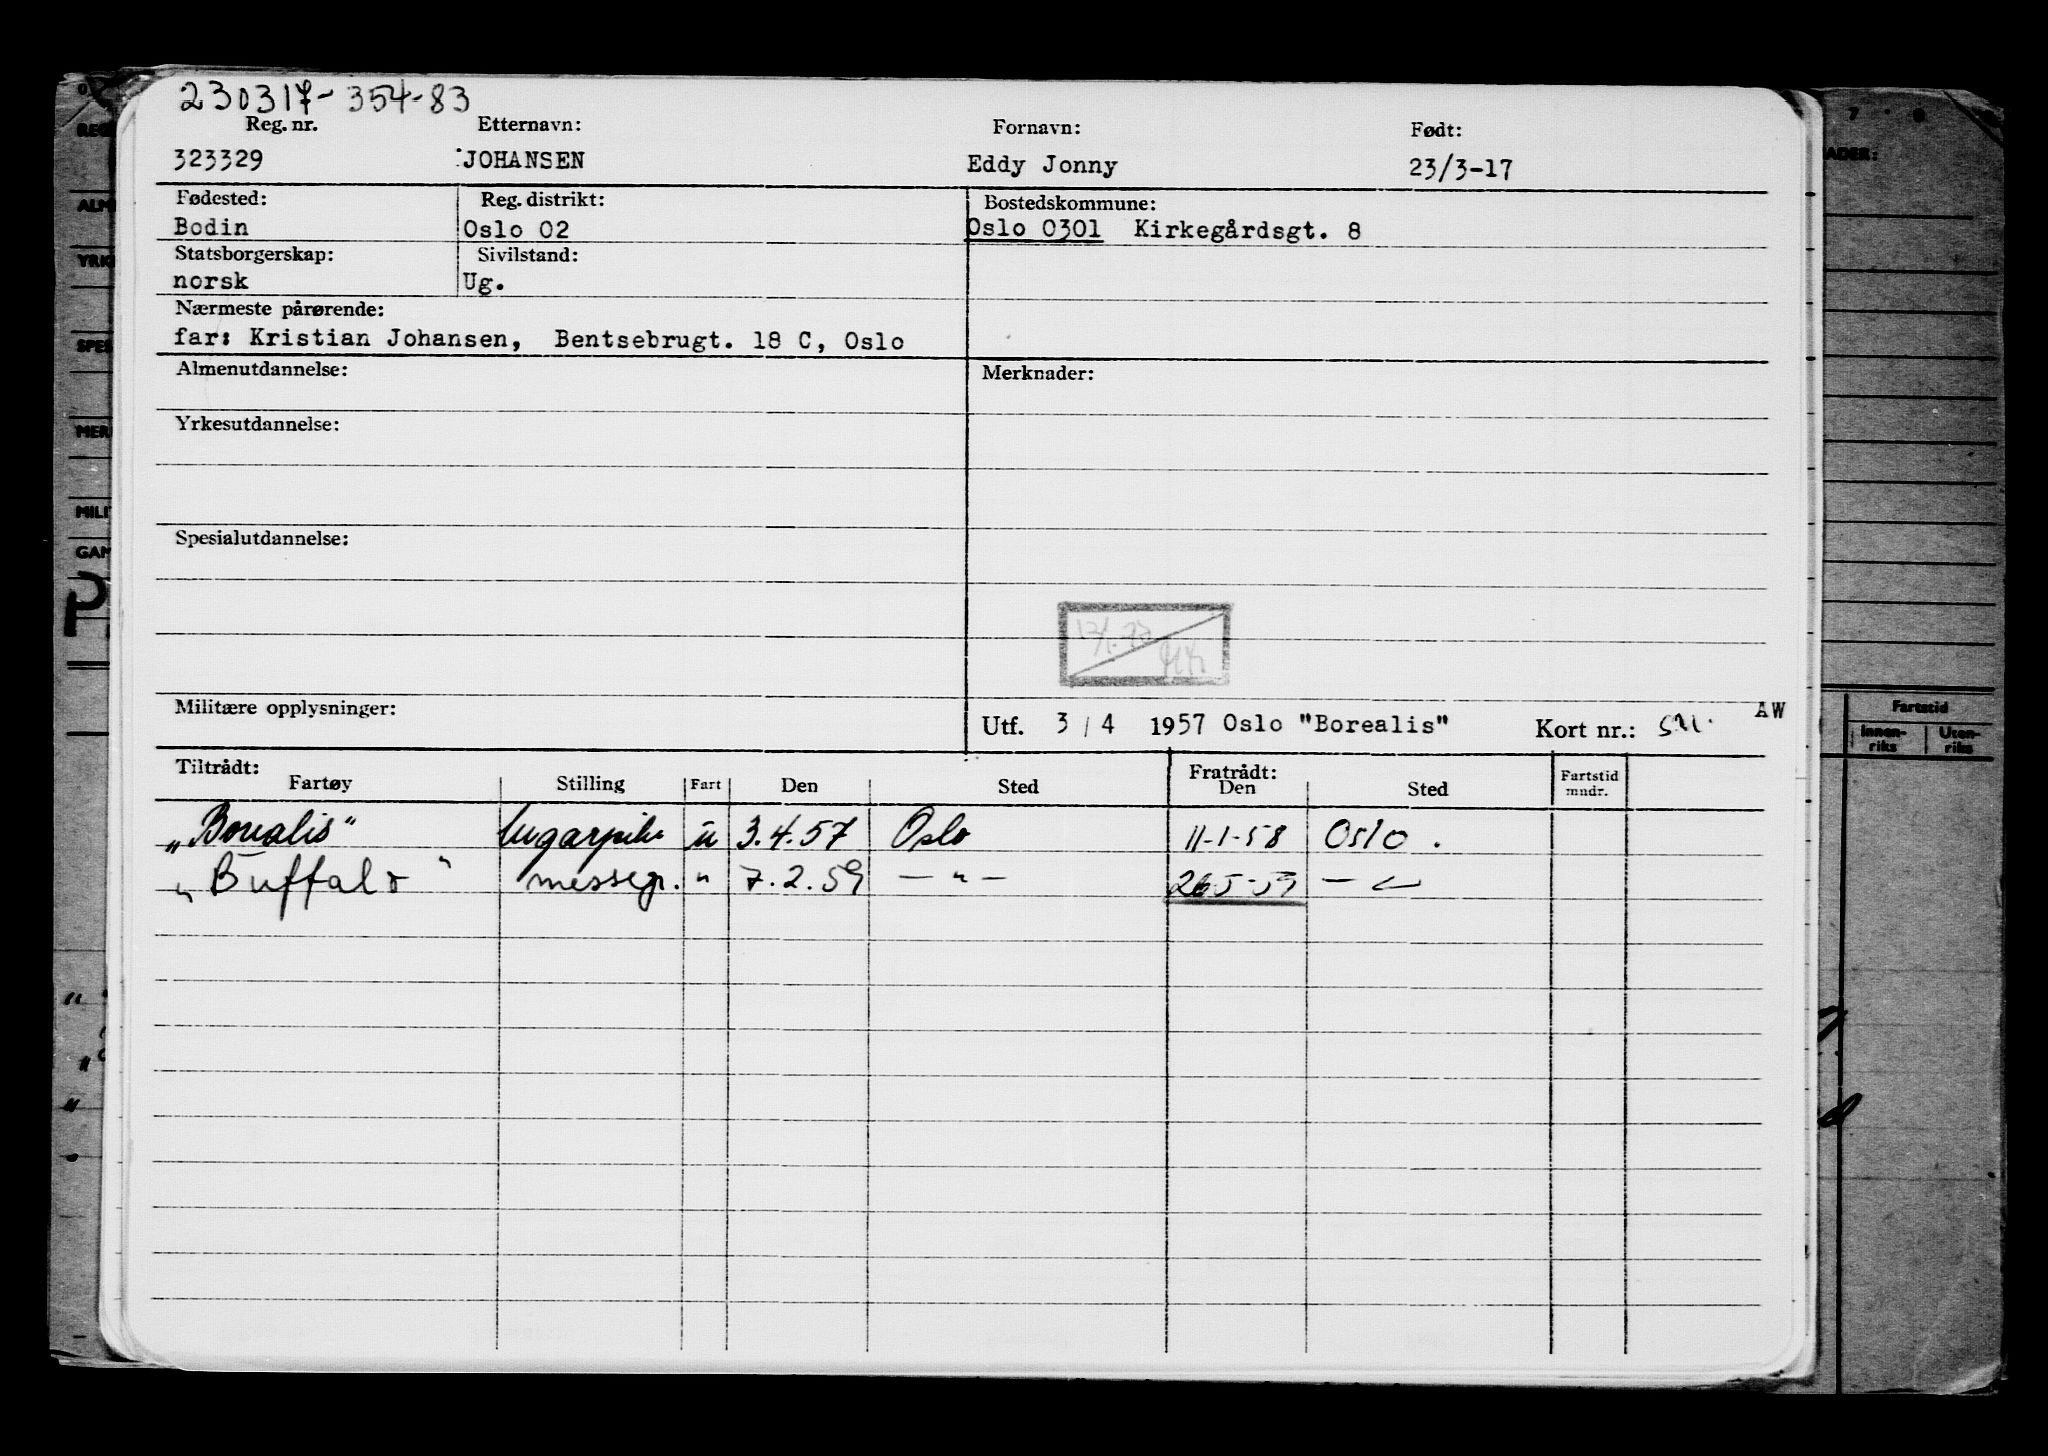 230317-354-83
Reg. nr. Etternavn: Fornavn: Født:
323329 JOHANSEN Eddy Jonny 23/3-17
Fødested: Reg. distrikt: Bostedskommune:
Bodin Oslo 02 Oslo 0301 Kirkegårdsgt. 8
Statsborgerskap: Sivilstand:
norsk Ug.
Nærmeste pårørende:
far: Kristian Johansen, Bentsebrugt. 18 C, Oslo
Almenutdannelse: Merknader:
Yrkesutdannelse:
Spesialutdannelse:
Militære opplysninger: Utf. 3/4 1957 Oslo "Borealis" Kort nr.: AW
Tiltrådt: Fratrådt:
Fartøy Stilling Fart Den Sted Den Sted Fartstid mndr.
„Borealis" lugarpike u 3.4.57 Oslo 11-1-58 Oslo.
„Buffalo" messegp. " 7.2.59 — " — 26-5-59 — "
Fartstid
Innen-riks Uten-riks